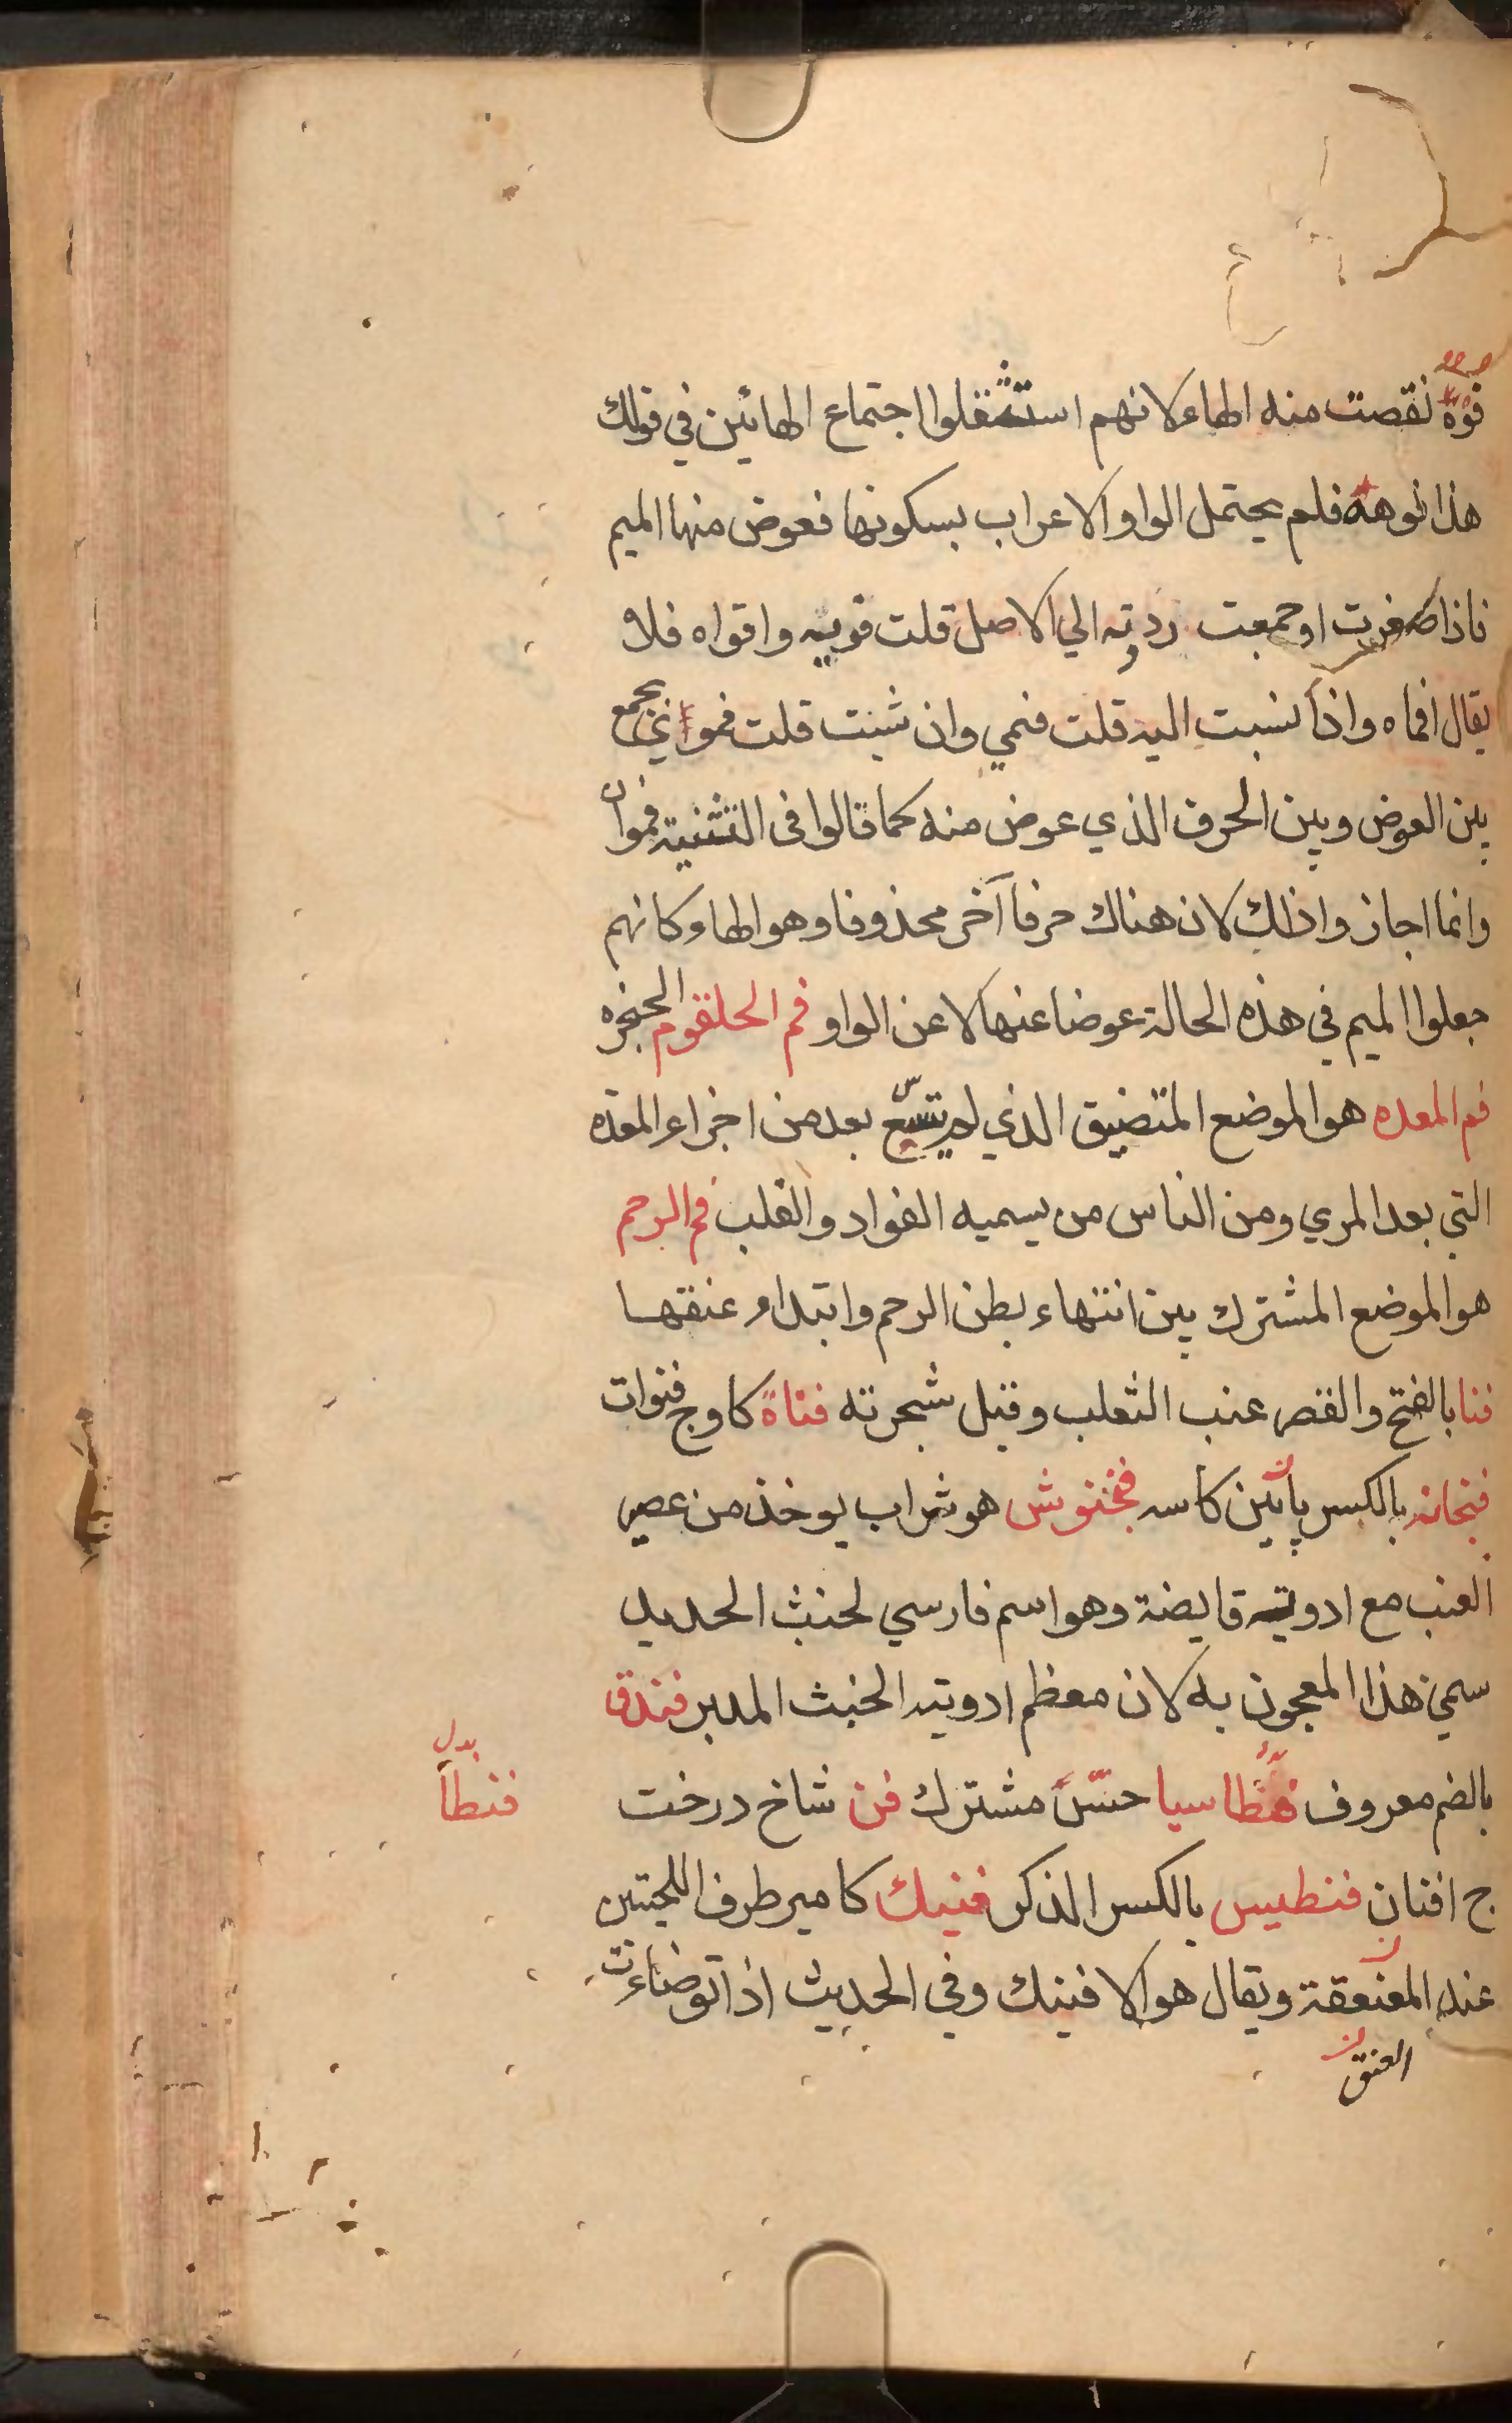 فوه نقصت منه الهاء لانهم استثقلوا اجتماع الهائين في قولك
هذا فوهه فلم يحتمل الواو الاعراب بسكونها فعوض منها الميم
فاذا صغرت او جمعت رددته الي الاصل قلت فويه وافواه فلا
يقال افماه واذا نسبت اليه قلت فمي وان شئت قلت فموي يجمع
بين العوض وبين الحرف الذي عوض منه كما قالوا فى التثنية فموان
وانما اجازوا ذلك لان هناك حرفا آخر محذوفا وهو الهاء وكانهم
جعلوا الميم في هذه الحالة عوضا عنها لا عن الواو فم الحلقوم الحنجره
فم المعده هو الموضع المتضيق الذي لم يتسع بعد من اجزاء المعده
التي بعد المري ومن الناس من يسميه الفواد والقلب فم الرحم
هو الموضع المشترك بين انتهاء بطن الرحم وابتداء عنقها
فنا بالفتح والقصر عنب الثعلب وقيل شجرته فناة كاو ج فنوات
فنجانه بالكسر پائين كاسه فنجنوش هو شراب يوخذ من عصير
العنب مع ادوية قابضة وهو اسم فارسي لخبث الحديد
سمي هذا المعجون به لان معظم ادويته الخبث المدبر فندق
بالضم معروف فنطاسيا حسّ مشترك فن شاخ درخت
فنطا بدل
ج افنان فنطيس بالكسر الذكر فنيك كامير طرف اللحيين
عند العنفقة ويقال هو الافنيك وفي الحديث اذا توضاءت
العنق